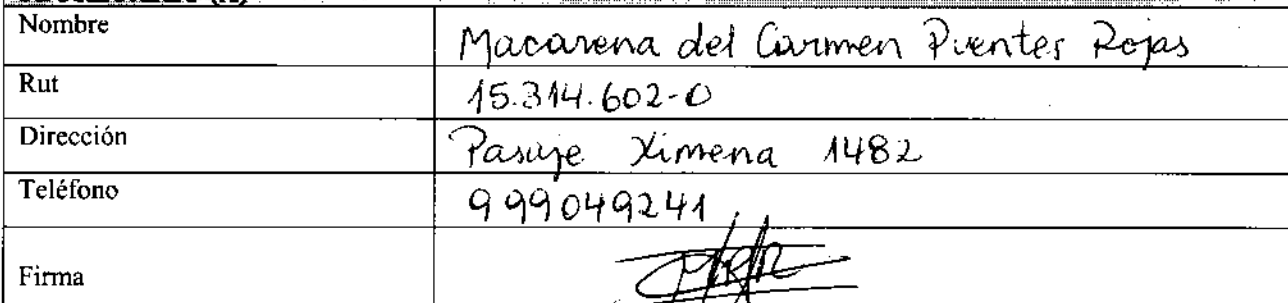 Nombre Macarena del Carmen Puentes Rojas
Rut 15.314.602-0
Dirección Pasaje Ximena 1482
Teléfono 999049241
Firma